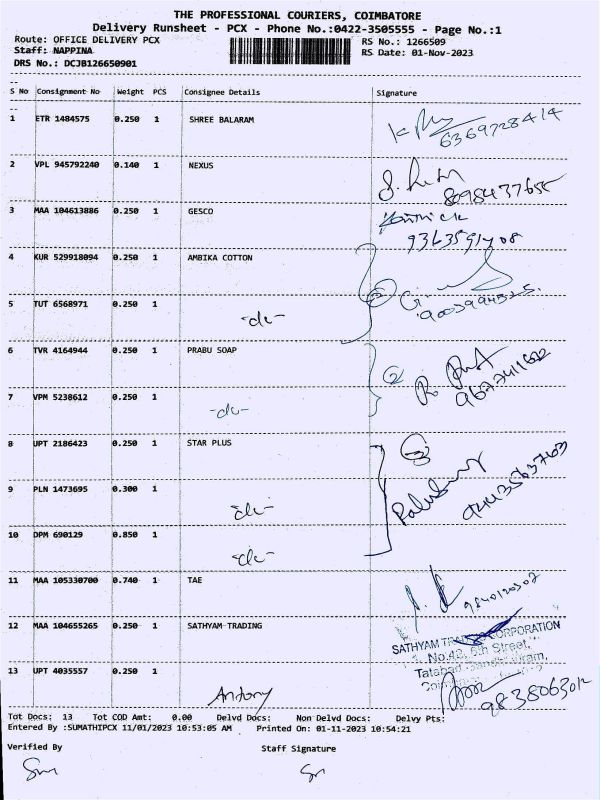 THE PROFESSIONAL COURIERS, COIMBATORE
Delivery Runsheet - PCX - Phone No.:0422-3505555 - Page No.:1
Route: OFFICE DELIVERY PCX RS No.: 1266509
Staff: NAPPINA RS Date: 01-Nov-2023
DRS No.: DCJB126650901
S No Consignment No Weight PCS Consignee Details Signature
1 ETR 1484575 0.250 1 SHREE BALARAM
6369728414
2 VPL 945792240 0.140 1 NEXUS
3 MAA 104613886 0.250 1 GESCO
4 KUR 529918094 0.250 1 AMBIKA COTTON
5 TUT 6568971 0.250 1 -do-
6 TVR 4164944 0.250 1 PRABU SOAP
7 VPM 5238612 0.250 1 -do-
8 UPT 2186423 0.250 1 STAR PLUS
9 PLN 1473695 0.300 1 -do-
10 DPM 690129 0.850 1 -do-
11 MAA 105330700 0.740 1 TAE
12 MAA 104655265 0.250 1 SATHYAM TRADING
SATHYAM TRADING CORPORATION
No.42, 5th Street,
Tatabad
13 UPT 4035557 0.250 1 Antony
9838063012
Tot Docs: 13 Tot COD Amt: 0.00 Delvd Docs: Non Delvd Docs: Delvy Pts:
Entered By :SUMATHIPCX 11/01/2023 10:53:05 AM Printed On: 01-11-2023 10:54:21
Verified By Staff Signature